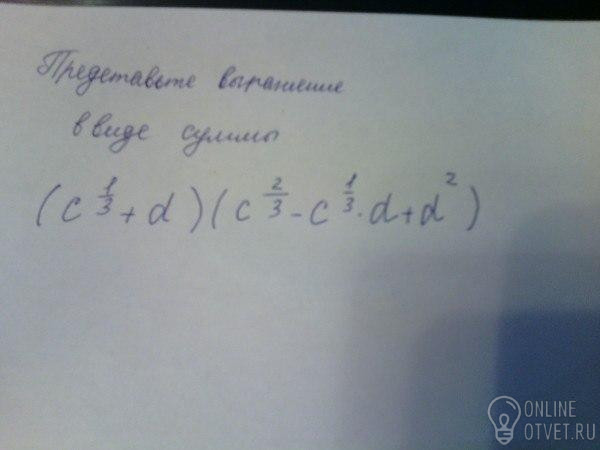 Представьте выражение
в виде суммы
(c^{\frac{1}{3}} + d)(c^{\frac{2}{3}} - c^{\frac{1}{3}} · d + d^2)
ONLINE
OTVET.RU